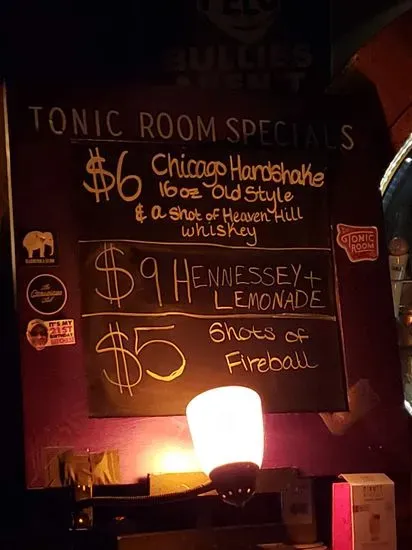 BULLIES
AREN'T
TONIC ROOM SPECIALS
$6 Chicago Handshake
16oz Old Style
& a shot of Heaven Hill
whiskey
$9 HENNESSEY +
LEMONADE
$5 Shots of
Fireball
TONIC
ROOM
IT'S MY
21ST
BIRTHDAY